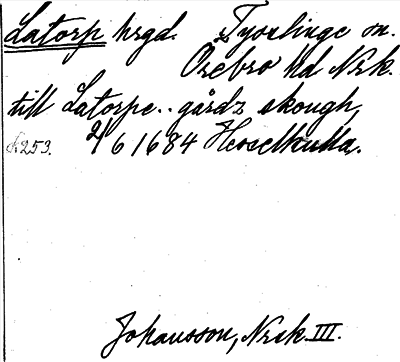 Latorp hrgd. Tysslinge sn.
Örebro hd Nrk.
till Latorpz.. gårdz skough,
s. 253. 2/6 1684 Hesselkulla.
Johansson, Nrsk. III.